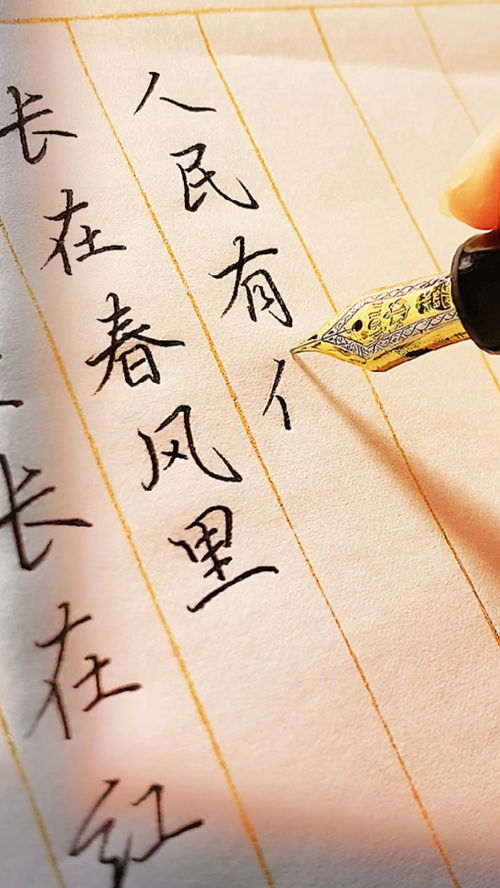 长在红
长在春风里
人民有亻